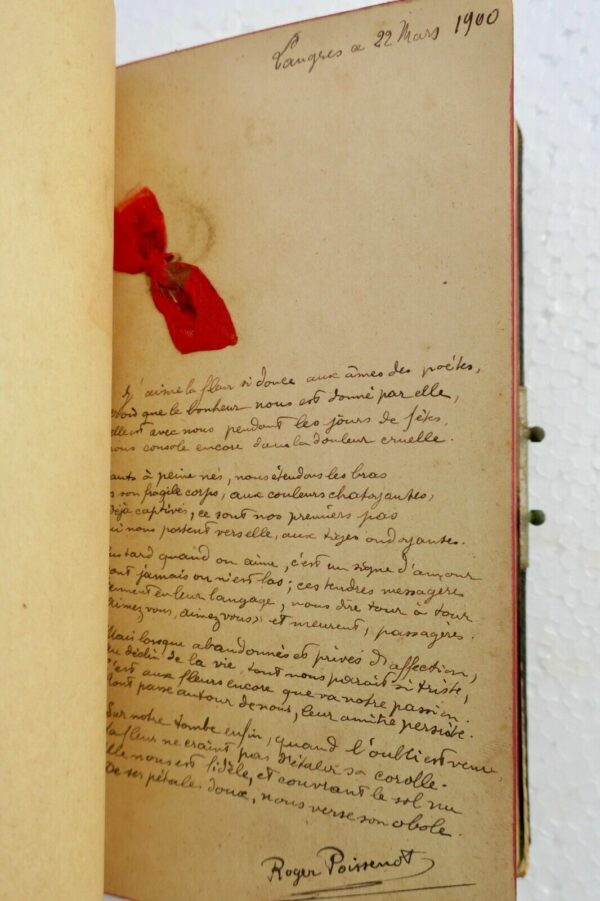 Langres a 22 Mars 1900
J'aime la fleur si douce aux âmes des poètes,
vois que le bonheur nous est donné par elle,
elle est avec nous pendant les jours de fêtes,
nous console encore dans la douleur cruelle.
ants à peine nés, nous étendons les bras
s son fragile corps, aux couleurs chatoyantes,
déjà captivés, ce sont nos premiers pas
ui nous portent vers elle, aux tiges ondoyantes.
us tard quand on aime, c'est un signe d'amour
ont jamais on n'est las ; ces tendres messagers
ement en leur langage, nous dire tour à tour
aimez vous, aimez vous » et meurent, passagères.
Mais lorsque abandonnés et privés d'affection,
au déclin de la vie, tout nous paraît si triste,
C'est aux fleurs encore que va notre passion.
dont passe autour de nous, leur amitié persiste.
Sur notre tombe enfin, quand l'oubli est venu,
la fleur ne craint pas d'étaler sa corolle.
elle nous est fidèle, et couvrant le sol nu
De ses pétales doux, nous verse son obole.
Roger Poissenot